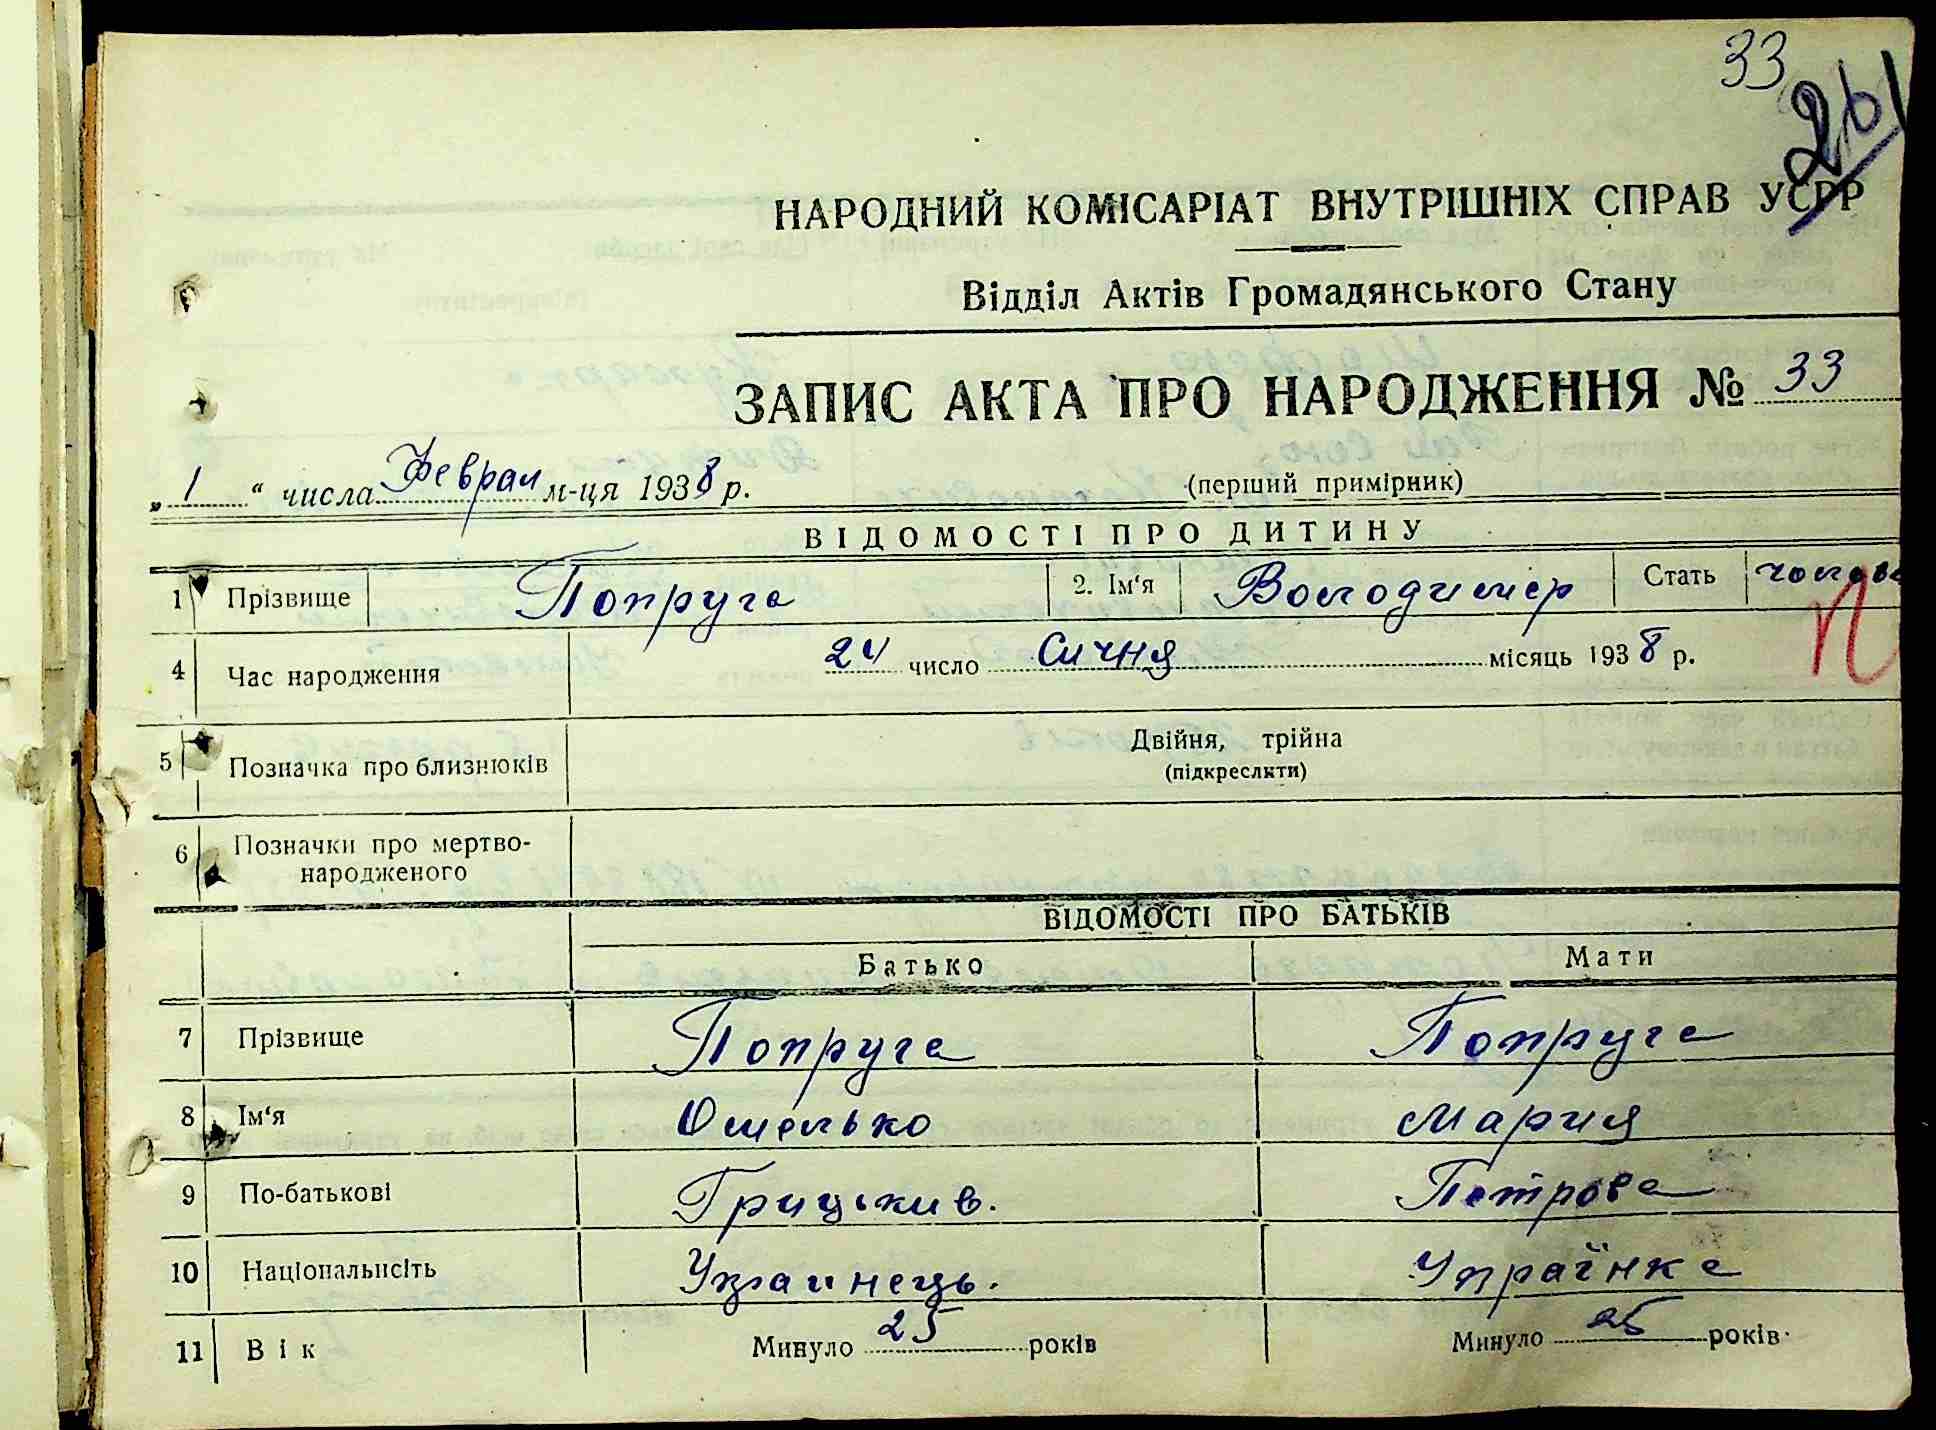 33
261
НАРОДНИЙ КОМІСАРІАТ ВНУТРІШНІХ СПРАВ УСРР
Відділ Актів Громадянського Стану
ЗАПИС АКТА ПРО НАРОДЖЕННЯ № 33
„ 1 “ числа Феврал м-ця 1938 р. (перший примірник)
ВІДОМОСТІ ПРО ДИТИНУ
1 Прізвище Попруга 2. Ім‘я Володимер Стать чолові
4 Час народження 24 число Січня місяць 1938 р.
П
5 Позначка про близнюків Двійня, трійна
(підкреслити)
6 Позначки про мертво-
народженого
ВІДОМОСТІ ПРО БАТЬКІВ
Батько Мати
7 Прізвище Попруга Попруга
8 Ім‘я Омелько Мария
9 По-батькові Грицькив. Петрова
10 Національність Украинець. Українка
11 Вік Минуло 25 років Минуло 25 років